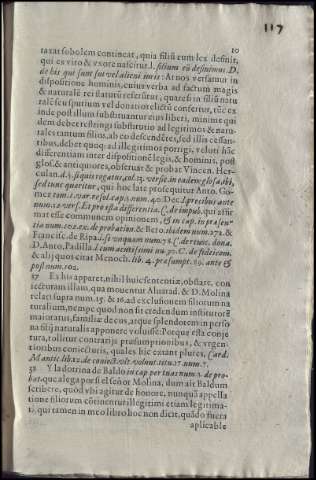 117
10
taxat sobolem contineat, quia filiū eum lex definit,
qui ex viro & vxore nascitur. l. filium eū definimus. D.
de his qui sunt sui vel alieni iuris: At nos versamur in
dispositione hominis, cuius verba ad factum magis
& naturalē rei statum referuntur, quare si in filiū natu
ralē seu spurium vel donatio electū confertur,
inde post illum substituantur eius liberi, minime qui
dem debet restringi substitutio ad legitimos & natu-
rales tantum filios, ab eo descendētes, sed illis cessan-
tibus, debet quoq; ad illegitimos porrigi, veluti hāc
differentiam inter dispositionē legis, & hominis, post
glos. & antiquiores, obseruat & probat Vincen. Her-
culan. d. §. si quis rogatus, col. 13. verse. in eadem glosa, ibi,
sed tunc queritur, qui hoc late prosequitur Anto. Go-
mez tom. 1. var. resol. cap. 5. num. 40. Dec. l. precibus ante
num. 12. vers. Et pro ista differentia. C. de impub. qui affir
mat esse communem opinionem, & in cap. in præsen-
tia num. 102. ex. de probation. & Bero. ibidem num. 272. &
Francisc. de Ripa. l. si vnquam num. 73. C. de reuoc. dona.
D. Anto. Padilla. l. cum acutissimi nu. 30. C. de fideicom.
& alij quos citat Menoch. lib. 4. præsumpt. 89. ante &
post num. 102.
37 Ex his apparet, nihil huic sententiæ, obstare, con
iecturam illam, qua mouentur Aluarad. & D. Molina
relati supra num. 15. & 16. ad exclusionem filiorum na
turalium, nempe quod non sit credendum institutorē
maioratus, familiæ decus, atque splendorem in perso
na filij naturalis apponere voluisse. Porque esta conje
tura, tollitur contrarijs præsumptionibus, & vrgen
tioribus coniecturis, quales hic extant plures, Card.
Mantic. lib. 12. de coniect. vlt. volunt. titu. 17. num. 7.
38 Y la dotrina de Baldo in cap. per tuas num. 3. de pro-
bat. que alega por si el señor Molina, dum ait Baldum
scribere, quod vbi agitur de honore, nunquā appella
tione filiorum cōtinentur illegitimi etiam legitima-
ti, qui tamen in meo libro hoc non dicit, quādo fuera
aplicable